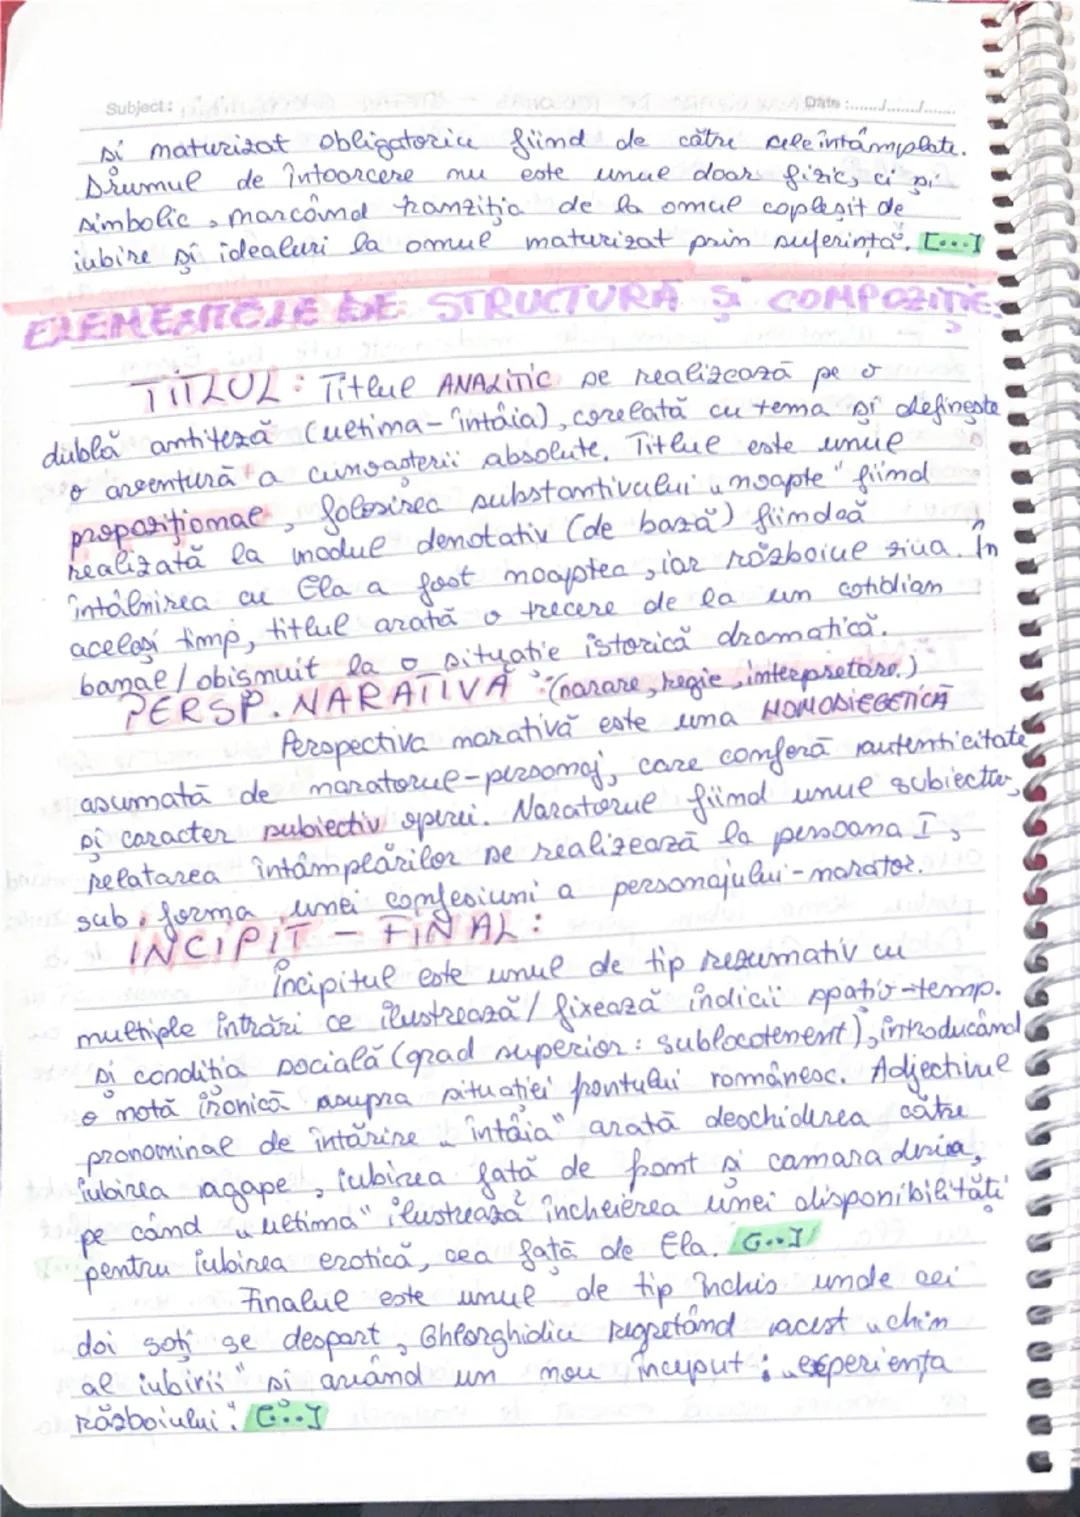 Subject: Date :......../......../........
și maturizat obligatoriu fiind de către cele întâmplate.
Drumul de întoarcere nu este unul doar fizic, ci și
simbolic, marcând tranziția de la omul copleșit de
iubire și idealuri la omul maturizat prin suferință. [...]
ELEMENTELE DE STRUCTURĂ ȘI COMPOZIȚIE:
TITLUL: Titlul ANALITIC se realizează pe o
dublă antiteză (ultima-întâia), corelată cu tema și definește
o aventură a cunoașterii absolute. Titlul este unul
propoziționae, folosirea substantivului „noapte" fiind
realizată la modul denotativ (de bază) fiindcă
întâlnirea cu Ela a fost noaptea, iar războiul ziua. În
același timp, titlul arată o trecere de la un cotidian
banal/obișnuit la o situație istorică dramatică.
PERSP. NARATIVĂ :(narare, regie, interpretare.)
Perspectiva narativă este una HOMODIEGETICĂ
asumată de naratorul-personaj, care conferă autenticitate
și caracter subiectiv operei. Naratorul fiind unul subiectiv,
relatarea întâmplărilor se realizează la persoana I,
sub forma unei confesiuni a personajului-narator.
INCIPIT - FINAL:
Incipitul este unul de tip rezumativ cu
multiple intrări ce ilustrează/ fixează indicii spatio-temp.
și condiția socială (grad superior: sublocotenent), introducând
o notă ironică asupra situației frontului românesc. Adjectivul
pronominal de întărire „întâia" arată deschiderea către
iubirea agape, iubirea față de front și camaraderia,
pe când „ultima" ilustrează încheierea unei disponibilități
pentru iubirea erotică, cea față de Ela. [...]
Finalul este unul de tip închis unde cei
doi soți se despart, Gheorghidiu regretând acest „chin
al iubirii" și având un nou început: „experiența
războiului". [...]